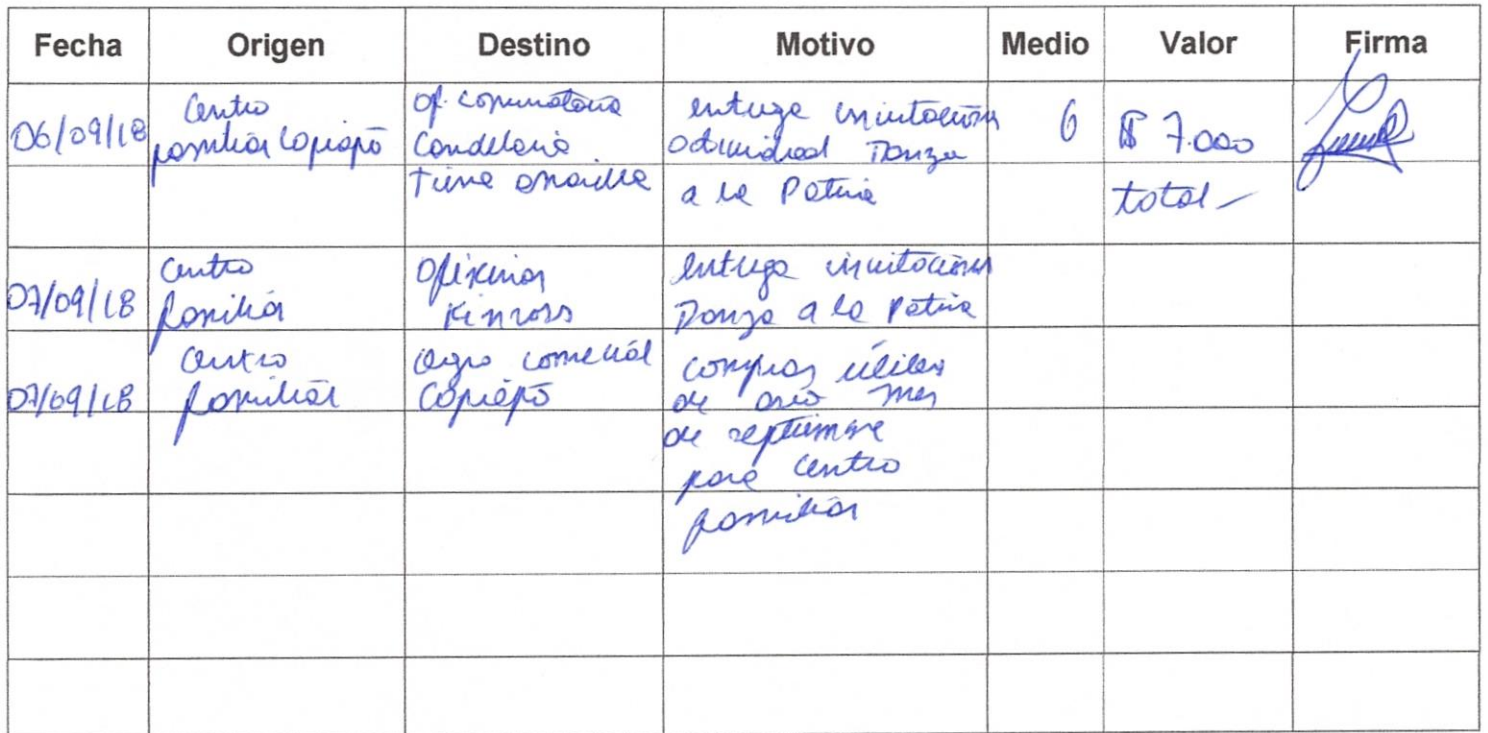 Fecha Origen Destino Motivo Medio Valor Firma
06/09/18 Centro familiar Copiapó Of. comunitaria Candelaria Tierra amarilla entrega invitaciones actividad Danza a la Patria 6 $ 7.000 total
07/09/18 Centro familiar Oficinas Kinross entrega invitaciones Danza a la Patria
07/09/18 Centro familiar comercial Copiapó compras útiles de aseo mes de septiembre para Centro familiar